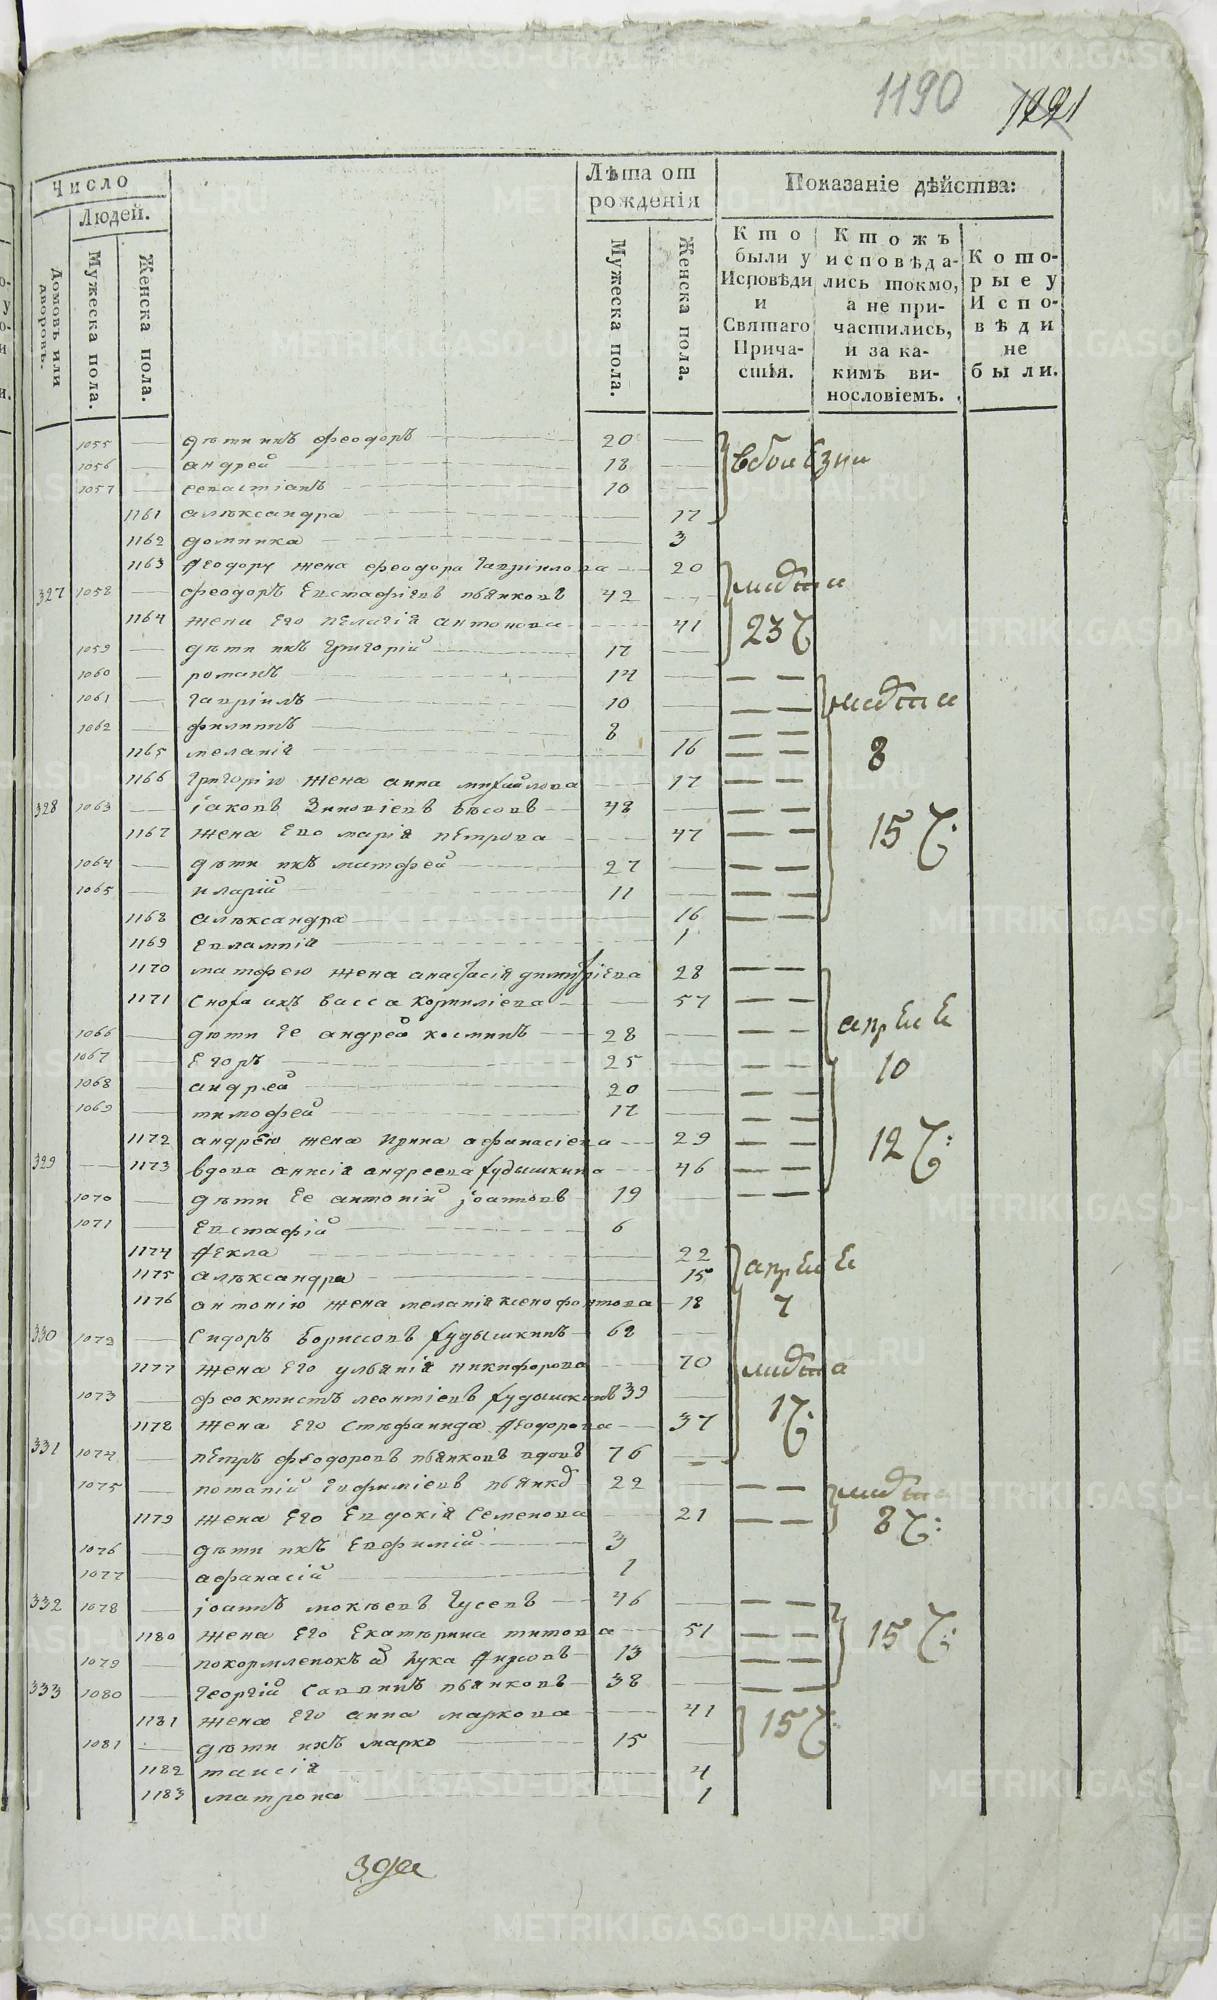 1190 1221
Число
Людей.
Домовъ или дворовъ.
Мужеска пола.
Женска пола.
Лѣта от рожденія
Мужеска пола.
Женска пола.
Показаніе дѣйства:
Кто были у Исповѣди и Святаго Причастія.
Ктожъ исповѣдались токмо, а не причастились, и за какимъ винословіемъ.
Которые у Исповѣди не были.
1055 дѣти ихъ феодоръ 20
1056 андрей 18
1057 севастіанъ 10
1161 алѣксандра 17
1162 домника 3
1163 Ѳеодору жена феодора Гаврілова 20
327 1058 феодоръ Евстафіевъ пьянковъ 42
1164 жена Его пелагія антонова 41
1059 дѣти ихъ Григорій 17
1060 романъ 14
1061 Гавріилъ 10
1062 филиппъ 8
1165 меланія 16
1166 Григорію жена анна михайлова 17
328 1063 іаковъ Зиновіевъ бѣсовъ 48
1167 жена Его марія пЕтрова 47
1064 дѣти ихъ матфей 27
1065 иларій 11
1168 алѣксандра 16
1169 Евлампія 1
1170 матфею жена анасѳасія димитріева 28
1171 Сноха ихъ васса корниліева 57
1066 дѣти Ее андрей косминъ 28
1067 Егоръ 25
1068 андрей 20
1069 тимофей 17
1172 андрею жена Ирина афанасіева 29
329 1173 вдова анисія андреева худышкина 46
1070 дѣти Ее антоній іоанновъ 19
1071 Евстафій 6
1174 Ѳекла 22
1175 алѣксандра 15
1176 антонію жена меланія ксенофонтова 18
330 1072 Сидоръ Бориссовъ худышкинъ 68
1177 жена Его ульянія никифорова 70
1073 феоктистъ леонтіевъ худышкинъ 39
1178 жена Его Стѣфанида Ѳеодорова 37
331 1074 пЕтръ феодоровъ пьянковъ вдовъ 76
1075 потапій Евфиміевъ пьянковъ 22
1179 жена Его Евдокія Семенова 21
1076 дѣти ихъ Евфимій 3
1077 афанасій 1
332 1078 іоаннъ мокѣевъ Гусевъ 46
1180 жена Его Екатѣрина титова 51
1079 покормленокъ Лука Фирсовъ 13
333 1080 Георгій Саввинъ пьянковъ 38
1181 жена Его анна маркова 41
1081 дѣти ихъ марко 15
1182 таисія 4
1183 матрона 1
23
8
15
10
12
7
17
8
15
15